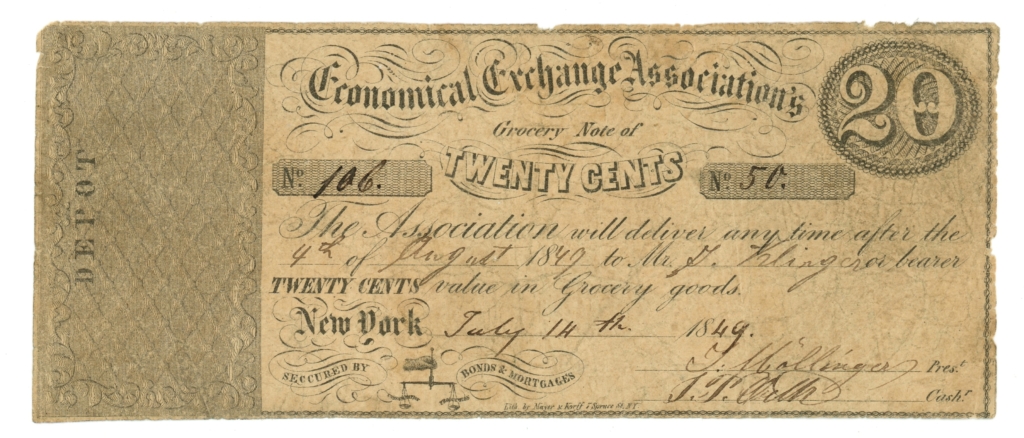 DEPOT
Economical Exchange Association's
20
Grocery Note of
TWENTY CENTS
No. 106.
No. 50.
The Association will deliver any time after the
4th of August 1849 to Mr. J. Klinger or bearer
TWENTY CENTS value in Grocery goods.
New York July 14th. 1849.
SECCURED BY
BONDS & MORTGAGES
J. Möllinger Prest.
Cashr.
Lith. by Mayer & Korff 7 Spruce St. N.Y.